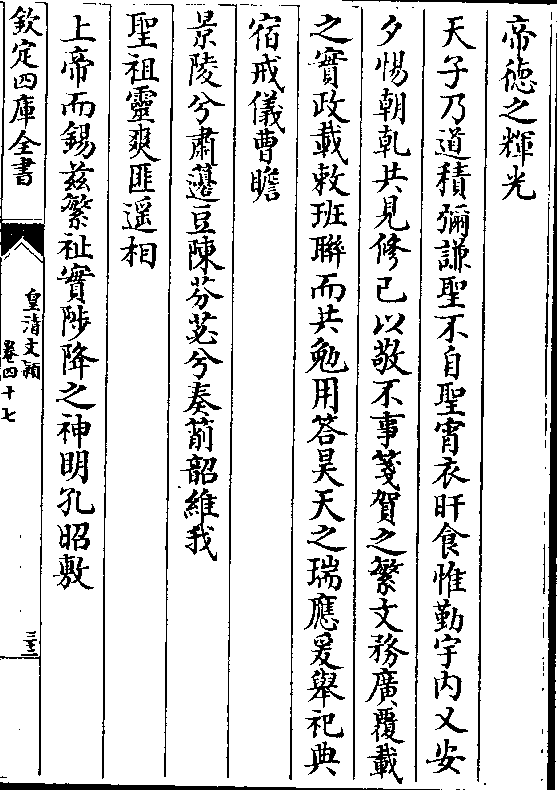 帝德之輝光
天子乃道積彌謙聖不自聖宵衣旰食惟勤宇内乂安
夕惕朝乾共見修己以敬不事箋賀之繁文務廣覆載
之實政載敕班聯而共勉用答昊天之瑞應爰舉祀典
宿戒儀曹瞻
景陵兮肅籩豆陳芬苾兮奏箾韶維我
聖祖靈爽匪遥相
上帝而錫兹繁祉實陟降之神明孔昭敷
欽定四庫全書
皇清文頴
卷四十七
三三